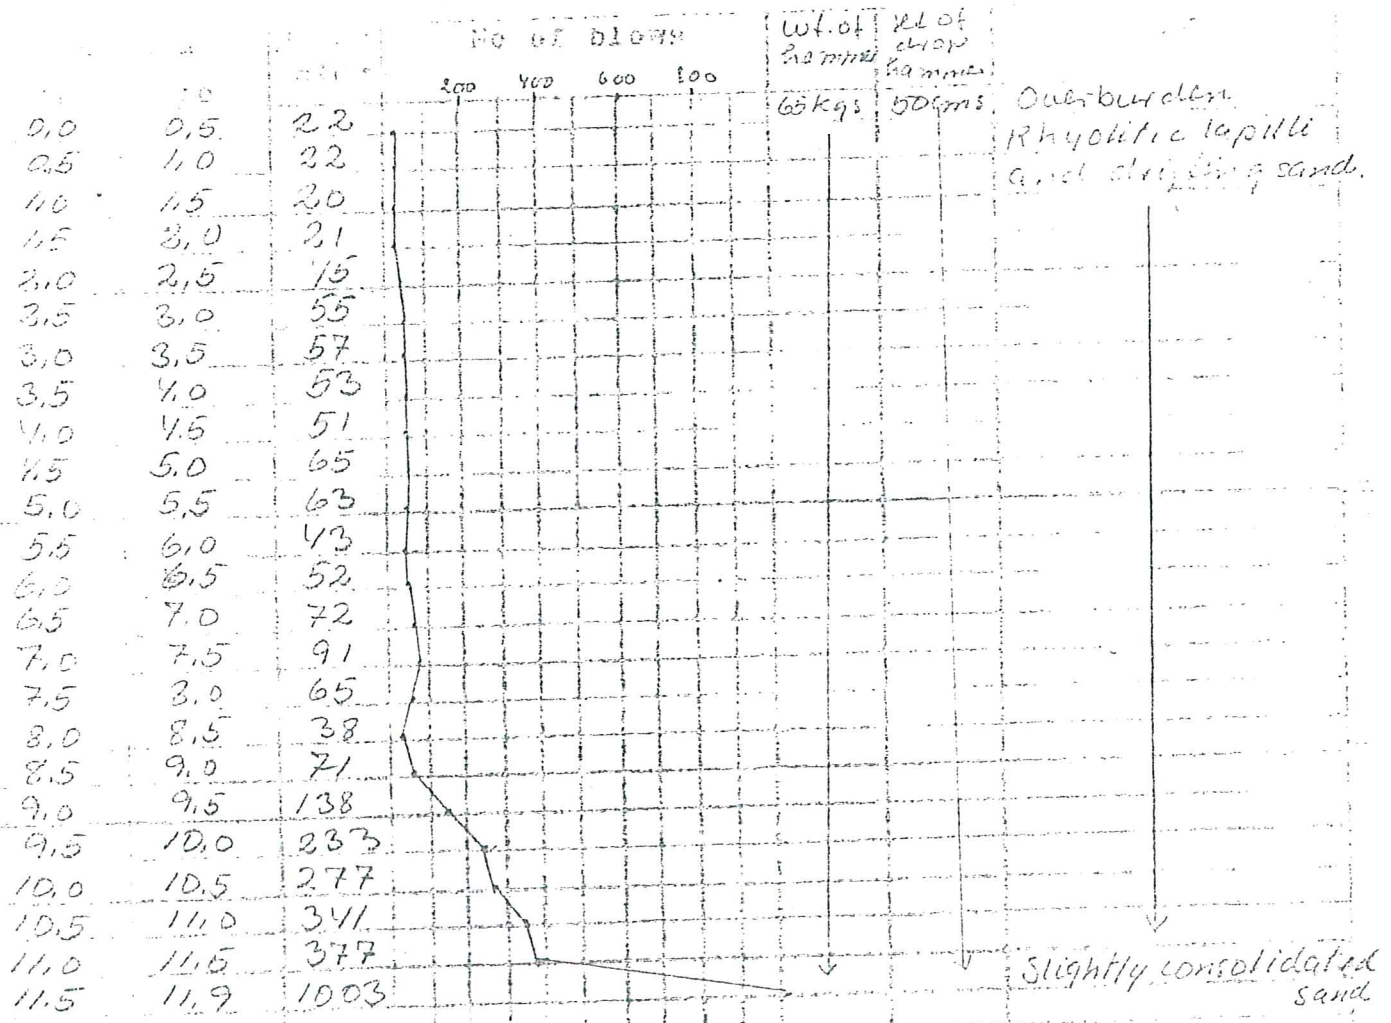 No of blows
Wt. of hammer
Ht of drop hammer
200 400 600 800
65 kgs 50 cms. Overburden.
0,0 0,5 22 Rhyolitic lapilli
0,5 1,0 22 and drifting sand.
1,0 1,5 20
1,5 2,0 21
2,0 2,5 45
2,5 3,0 55
3,0 3,5 57
3,5 4,0 53
4,0 4,5 51
4,5 5.0 65
5,0 5,5 63
5,5 6,0 43
6,0 6,5 52
6,5 7.0 72
7,0 7,5 91
7,5 8,0 65
8,0 8,5 38
8,5 9,0 71
9,0 9,5 138
9,5 10,0 233
10,0 10,5 277
10,5 11,0 341
11,0 11,5 377
11,5 11,9 1003
Slightly consolidated
sand